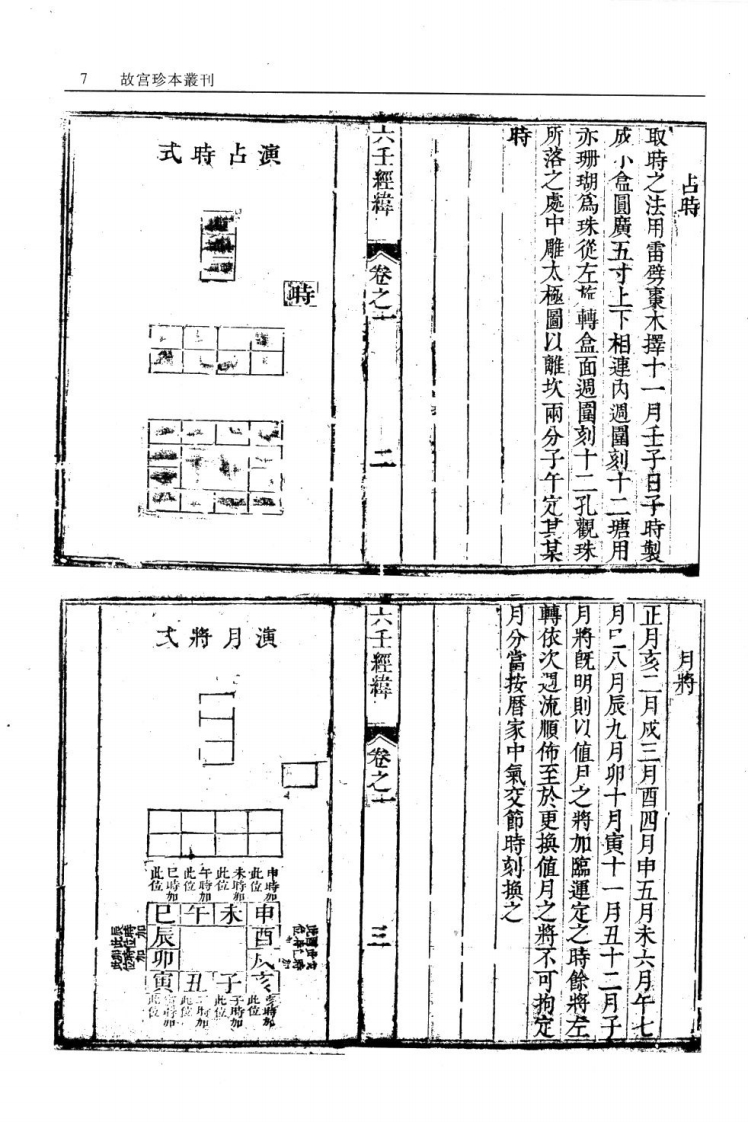 7 故宮珍本叢刊
占時
取時之法用雷劈棗木擇十一月壬子日子時製
成小盒圓廣五寸上下相連內週圍刻十二塘用
亦珊瑚爲珠從左旋轉盒面週圍刻十二孔觀珠
所落之處中雕太極圖以離坎兩分子午定其某
時
六壬經緯
卷之一
二
演占時式
時
月將
正月亥二月戌三月酉四月申五月未六月午七
月巳八月辰九月卯十月寅十一月丑十二月子
月將既明則以值月之將加臨運定之時餘將左
轉依次週流順佈至於更換值月之將不可拘定
月分當按曆家中氣交節時刻換之
六壬經緯
卷之一
三
演月將式
申時加此位
未時加此位
午時加此位
巳時加此位
巳午未申
辰酉
卯戌
寅丑子亥
亥時加此位
子時加此位
此位
此位